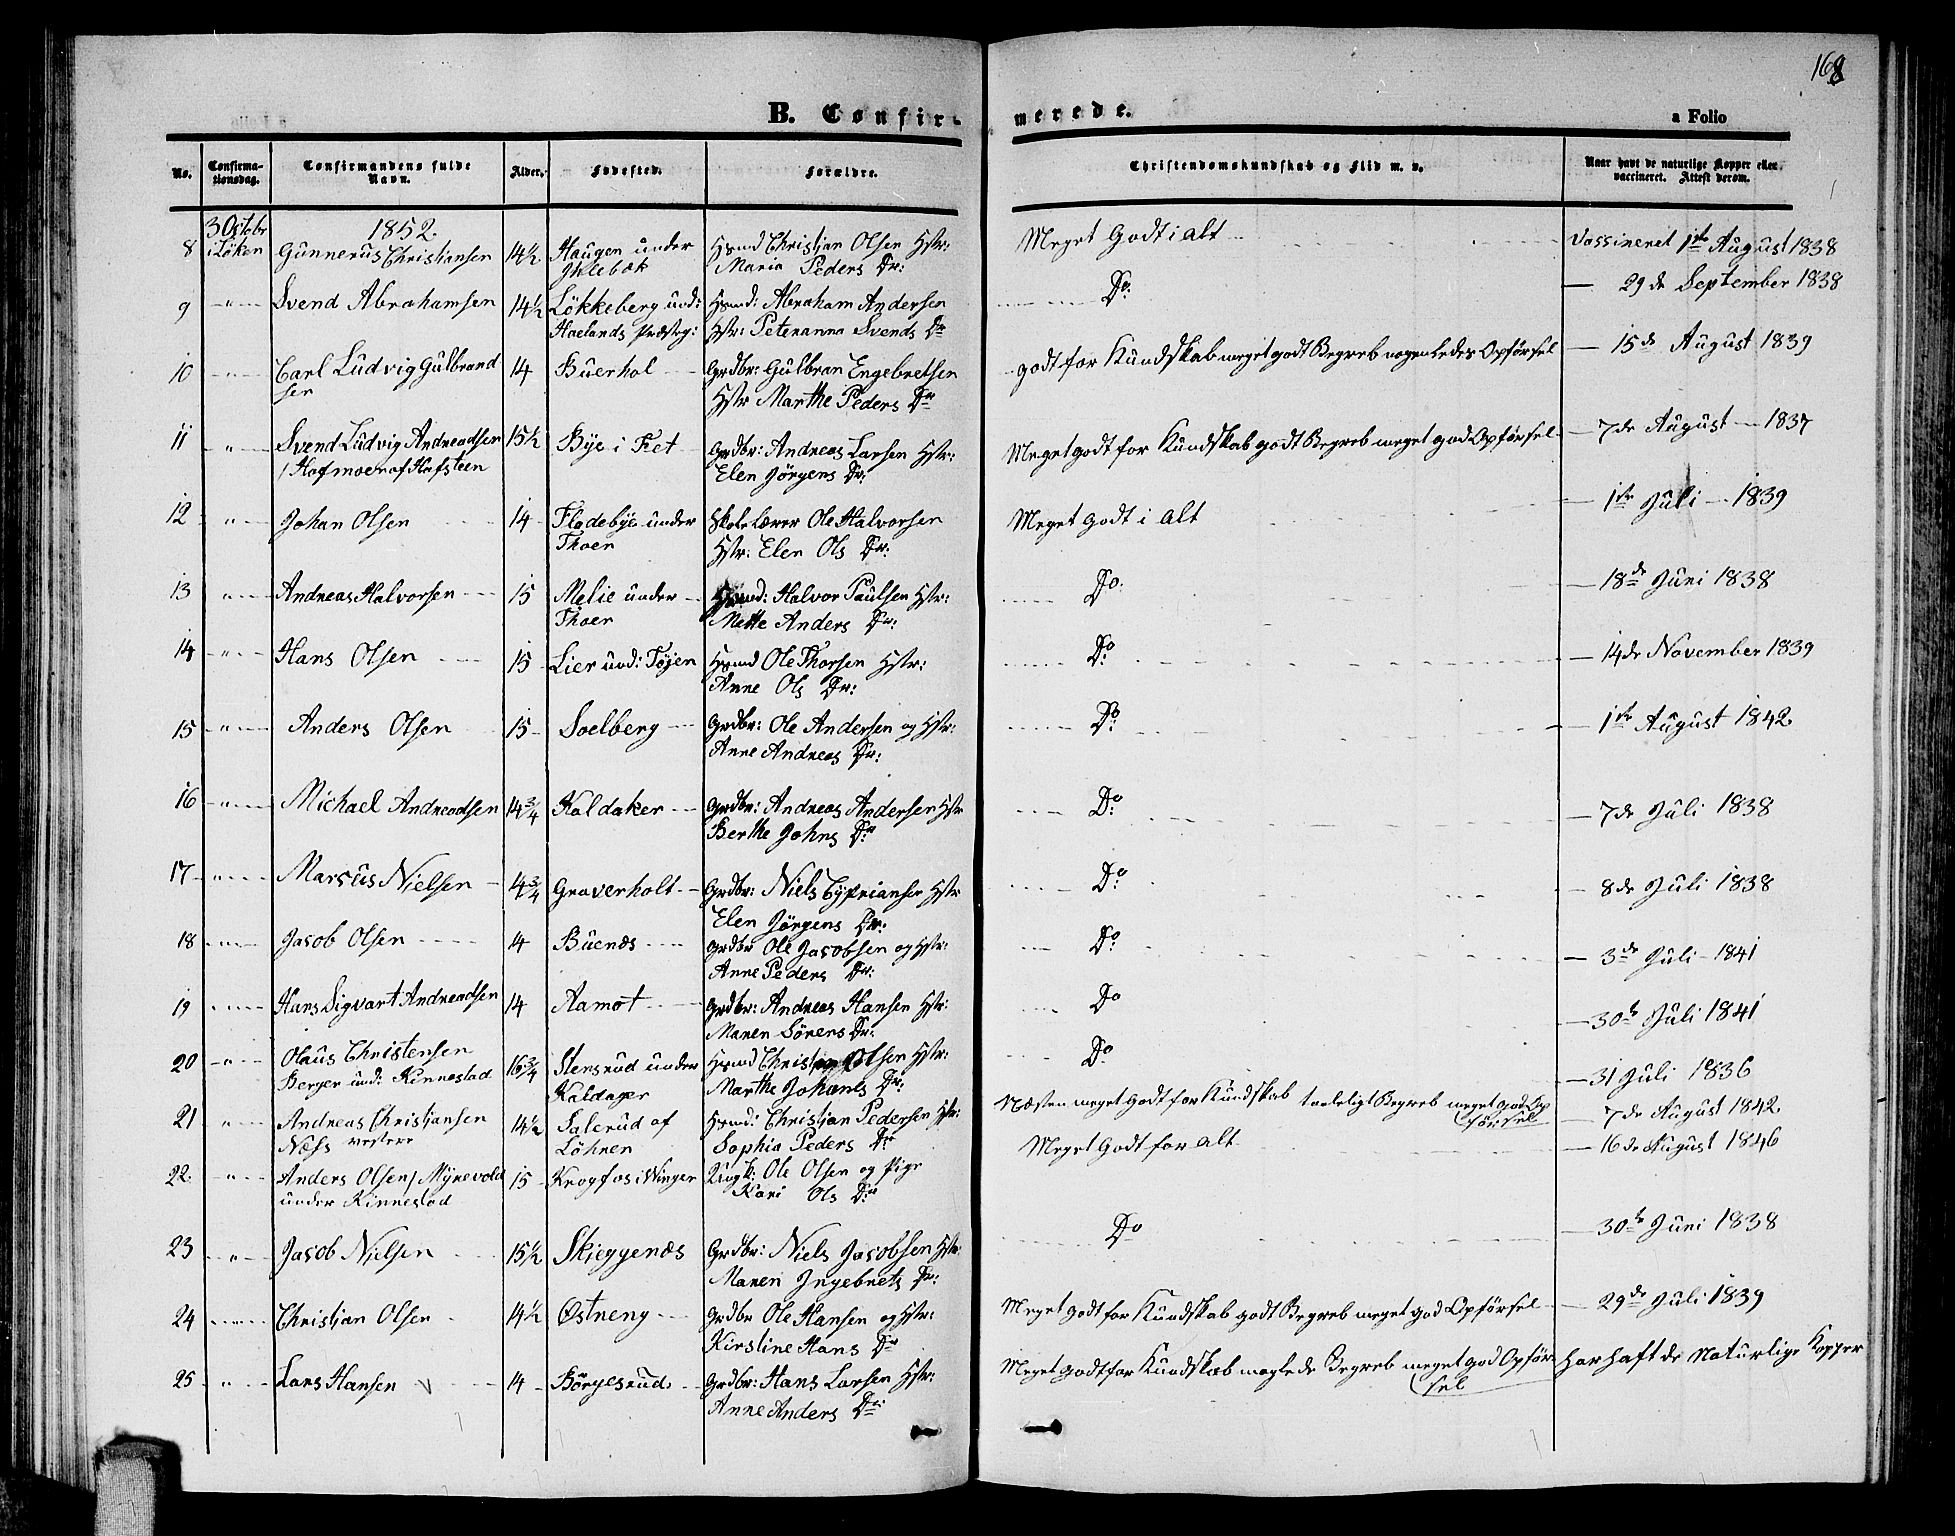 168
B. Confirmerede.
a Folio
No.
Confirmationsdag.
Confirmandens fulde Navn.
Alder.
Fødested.
Forældre.
Christendomskundskab og Flid m. v.
Naar havt de naturlige Kopper eller vaccineret. Attest derom.
3 Octobr 1852
8 i Løken Gunnerus Christiansen 14½ Haugen under Hsmd Christian Olsen Hstr: Meget Godt i alt Vassineret 1ste August 1838
Maria Peders Dr:
9 " Svend Abrahamsen 14½ Løkkeberg und: Hsmd: Abraham Andersen Do 29de September 1838
Hoelands Præsteg: Hstr: Peteranna Svends Dr
10 " Carl Ludvig Gulbrand 14 Buerhol Grdbr: Gulbran Engebretsen godt for Kundskab meget godt Begreb nogenledes Opførsel 15de August 1839
sen Hstr Marthe Peders Dr
11 " Svend Ludvig Andreadsen 15½ Bye i Fet Grdbr: Andreas Larsen Hstr: Meget godt for Kundskab godt Begreb meget god Opførsel 7de August 1837
/Hofmoen af Hofsteen Elen Jørgens Dr:
12 " Johan Olsen 14 Flodebye under Skolelærer Ole Halvorsen Meget Godt i alt 1ste Juli 1839
Thoer Hstr: Elen Ols Dr:
13 " Andreas Halvorsen 15 Melie under Hsmd: Halvor Paulsen Hstr: Do 18de Juni 1838
Thoer Mette Anders Dr:
14 " Hans Olsen 15 Lier und: Tøjen Hsmd Ole Thorsen Hstr: Do 14de November 1839
Anne Ols Dr:
15 " Anders Olsen 15 Soelberg Grdbr: Ole Andersen og Hstr: Do 1ste August 1842
Anne Andreas Dr:
16 " Michael Andreadsen 14¾ Kaldaker Grdbr: Andreas Andersen Hstr Do 7de Juli 1838
Berthe Johns Dr
17 " Marcus Nielsen 14¾ Graverholt Grdbr: Niels Cypriansen Hstr Do 8de Juli 1838
Elen Jørgens Dr:
18 " Jacob Olsen 14 Buenæs Grdbr Ole Jacobsen og Hstr: Do 3de Juli 1841
Anne Peders Dr:
19 " Hans Sigvart Andreadsen 14 Aamot Grdbr: Andreas Hansen Hstr: Do 30te Juli 1841
Maren Sørens Dr:
20 " Olaus Christensen 16¾ Stensrud under Hsmd Christian Olsen Hstr: Do 31 Juli 1836
Berger und: Kinnestad Kaldager Marthe Johanes Dr:
21 " Andreas Christiansen 14½ Salerud af Hsmd: Christian Pedersen Hstr: Næsten meget godt for Kundskab taaleligt Begreb meget god Op 7de August 1842
førsel
Næss vestere Løhnen Sophia Peders Dr
22 " Anders Olsen/ Mynevold 15 Krogfos i Vinger Ungk: Ole Olsen og Pige Meget Godt for alt 16de August 1846
under Kinnestad Kari Ols Dr
23 " Jacob Nielsen 15½ Skjeggenæs Grdbr: Niels Jacobsen Hstr: Do 30te Juni 1838
Maren Ingebrets Dr:
24 " Christian Olsen 14½ Østneng Grdbr Ole Hansen og Hstr: Meget godt for Kundskab godt Begreb meget god Opførsel 29de Juli 1839
Kirstine Hans Dr
25 " Lars Hansen 14 Børgesrud Grdbr: Hans Larsen Hstr: Meget godt for Kundskab maglede Begreb meget god Opfør har haft de Naturlige Kopper
sel
Anne Anders Dr: